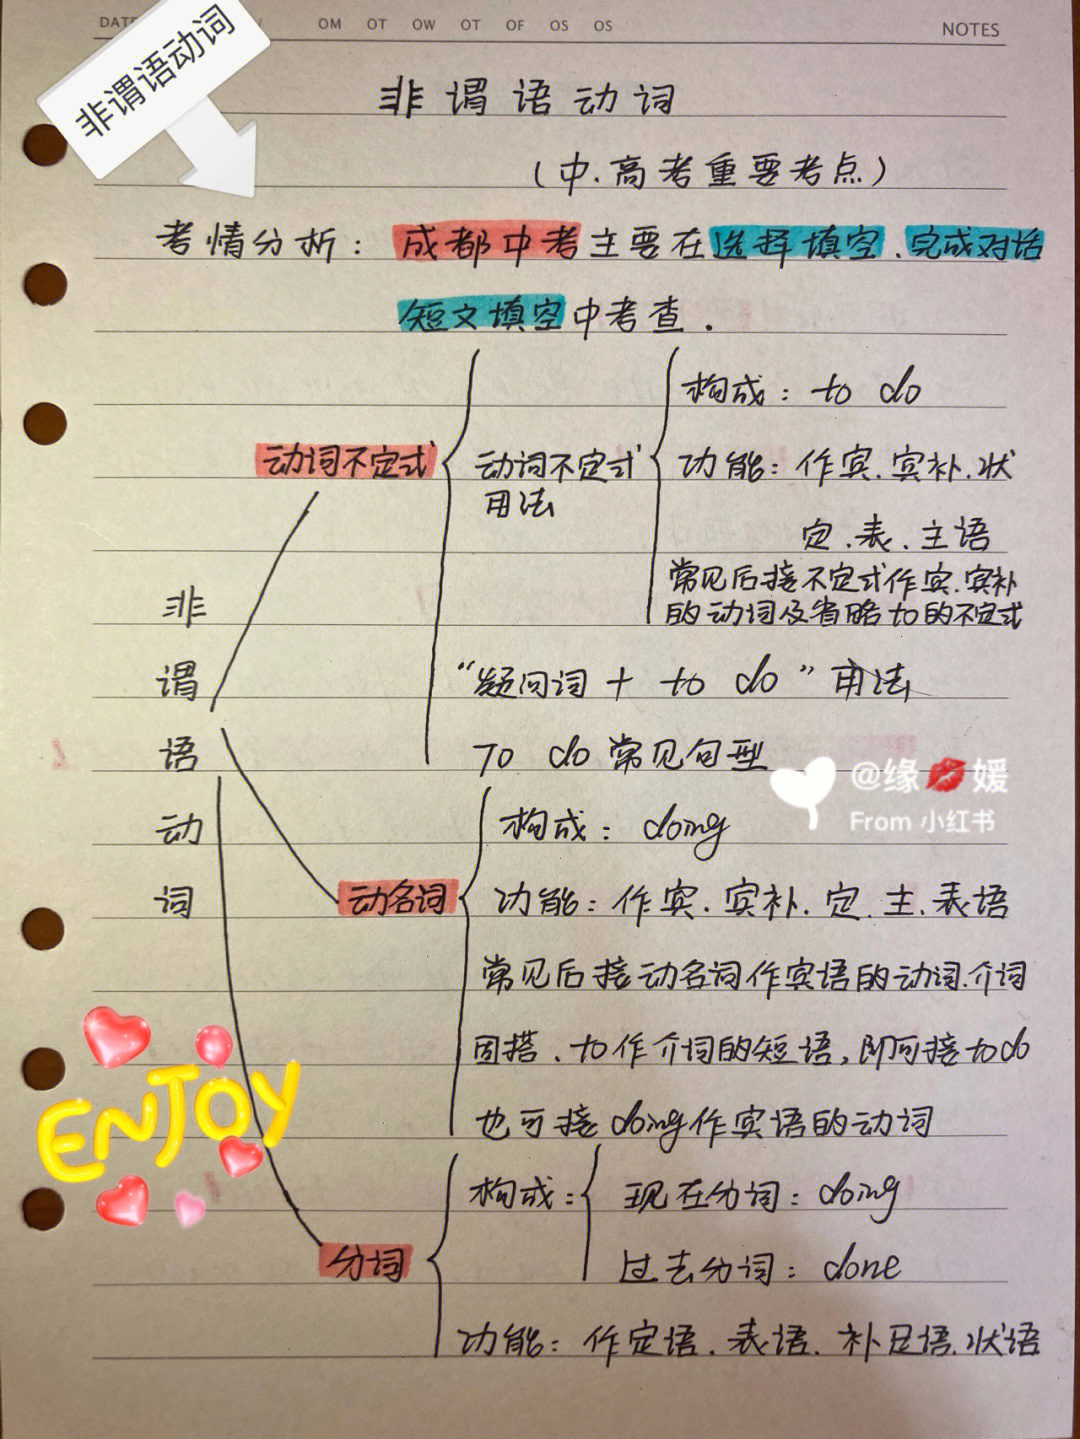 DATE
OM OT OW OT OF OS OS
NOTES
非谓语动词
非谓语动词
(中.高考重要考点)
考情分析: 成都中考主要在选择填空、完成对话
短文填空中考查.
构成: to do
动词不定式
动词不定式
用法
功能: 作宾.宾补.状
定.表.主语
常见后接不定式作宾.宾补
的动词及省略to的不定式
"疑问词 + to do"用法
To do 常见句型
非
谓
语
动
词
@缘💋媛
From 小红书
构成: doing
动名词
功能: 作宾.宾补.定.主.表语
常见后接动名词作宾语的动词.介词
固搭、to作介词的短语,即可接to do
也可接doing作宾语的动词
ENJOY
构成:
现在分词: doing
过去分词: done
分词
功能: 作定语.表语.补足语.状语